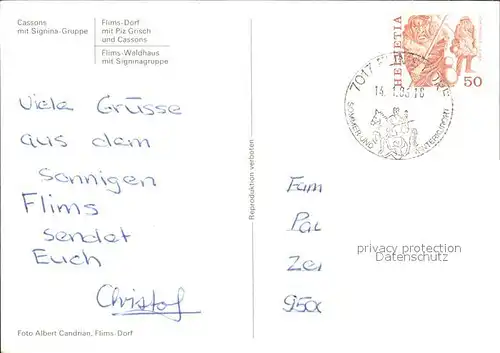 Cassons
mit Signina-Gruppe
Flims-Dorf
mit Piz Grisch
und Cassons
Flims-Waldhaus
mit Signinagruppe
HELVETIA
50
7017 FLIMS DORF
SOMMER UND WINTERSPORT
Viele Grüsse
aus dem
sonnigen
Flims
sendet
Euch
Christof
Reproduktion verboten
Fam
privacy protection
Datenschutz
Foto Albert Candrian, Flims-Dorf